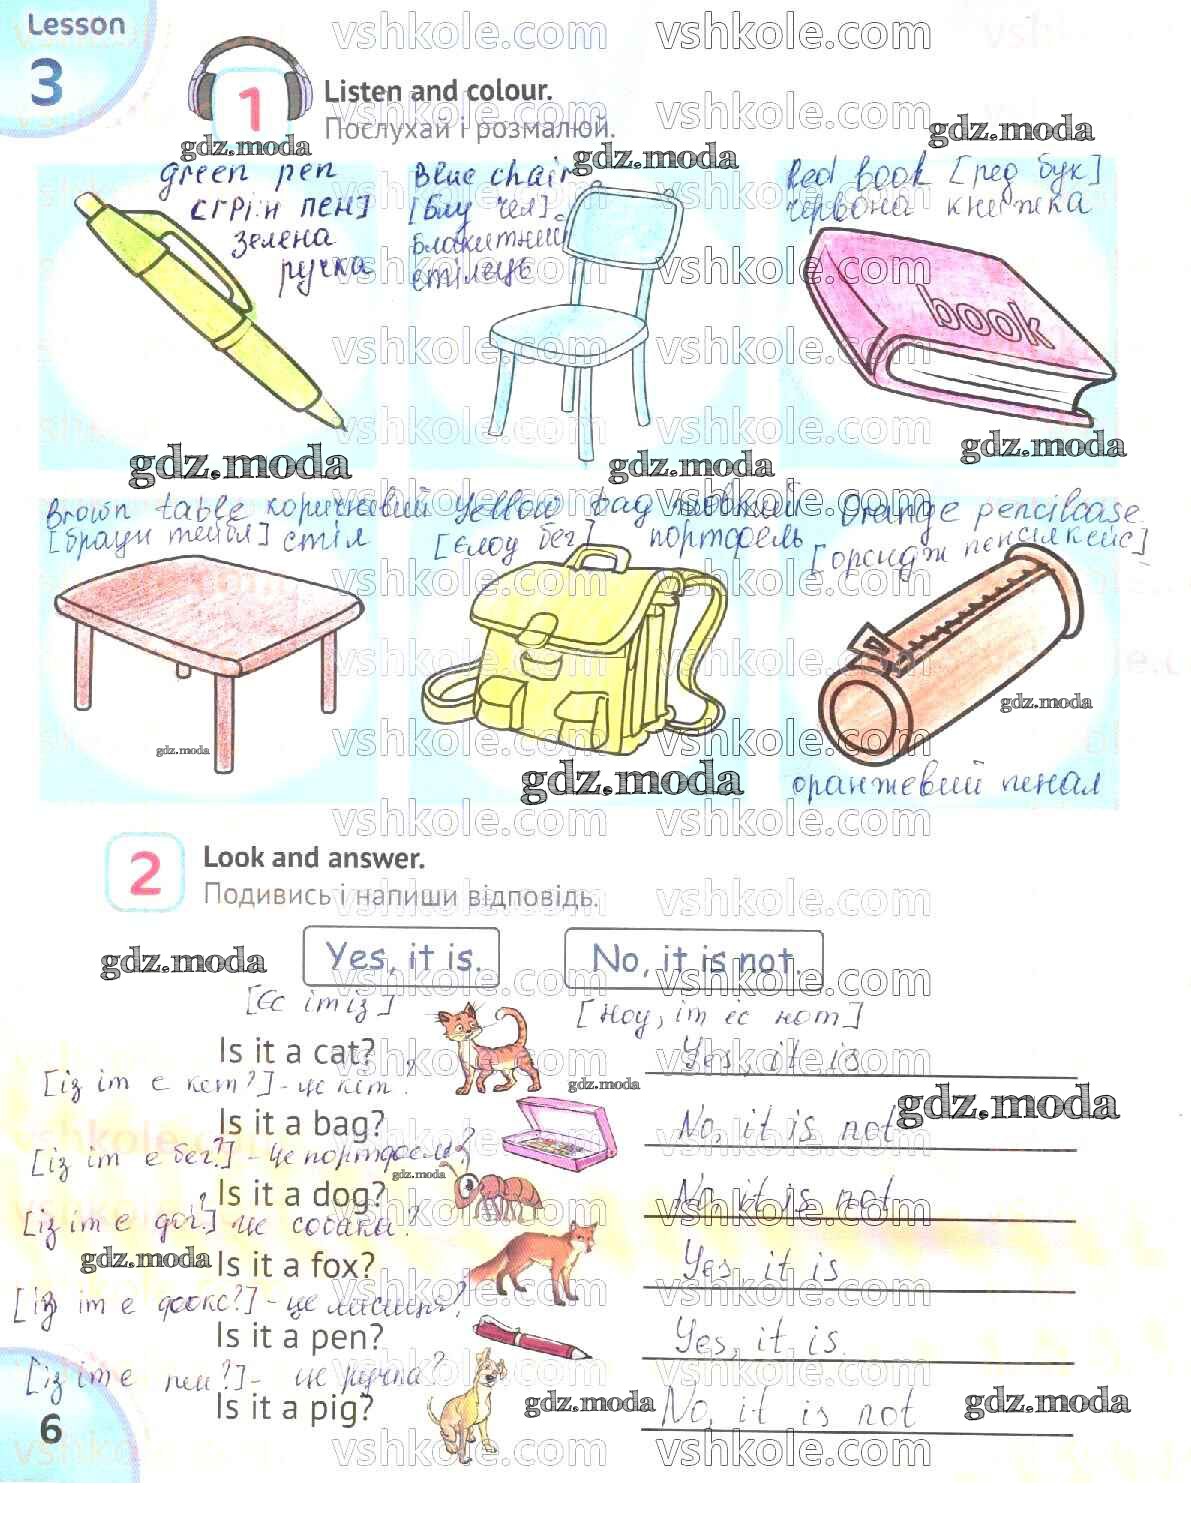 Lesson
3
1
Listen and colour.
Послухай і розмалюй.
green pen
[грін пен]
зелена
ручка
Blue chair
[блу чея]
блакитний
стілець
Red book [ред бук]
червона книжка
book
Brown table коричневий
[браун тейбл] стіл
Yellow bag
[єлоу бег] портфель
Orange pencilcase
[орендж пенсілкейс]
оранжевий пенал
2
Look and answer.
Подивись і напиши відповідь.
Yes, it is.
No, it is not.
[Єс іт із]
[Ноу, іт іс нот]
Is it a cat?
Yes, it is
[із іт е кет?] - це кіт?
Is it a bag?
No, it is not
[із іт е бег?] - це портфель?
Is it a dog?
No, it is not
[із іт е дог?] це собака?
Is it a fox?
Yes, it is
[із іт е фокс?] - це лисиця?
Is it a pen?
Yes, it is.
[із іт е пен?] - це ручка?
Is it a pig?
No, it is not
6
vshkole.com
gdz.moda